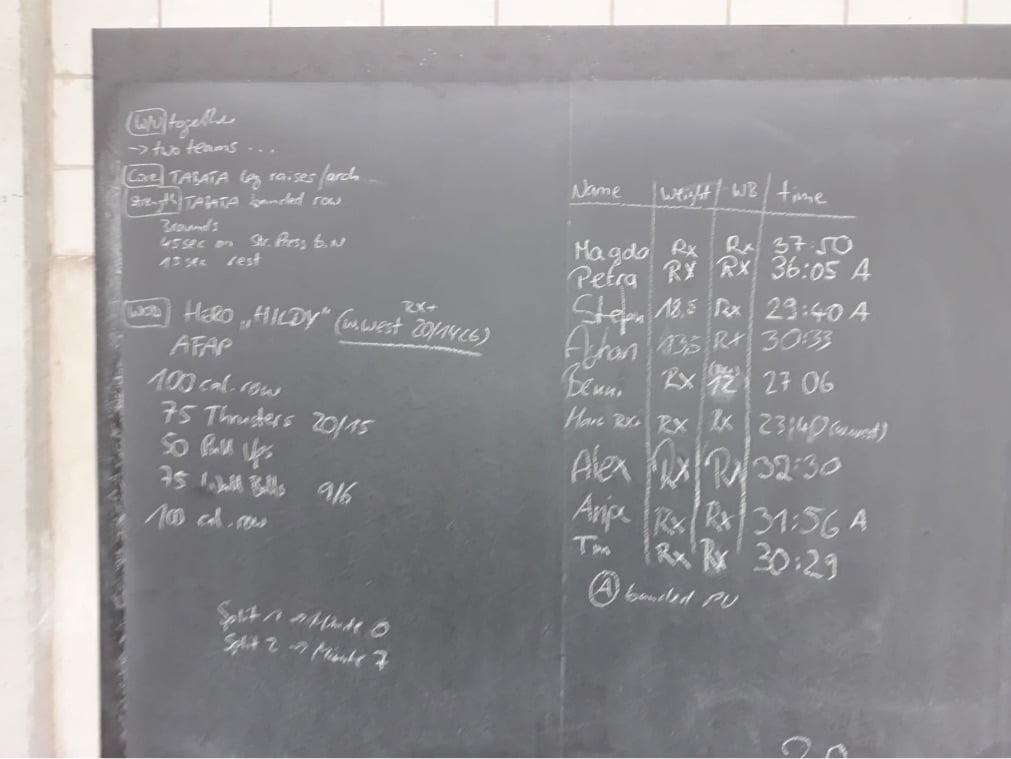 W/U together
-> two teams ...
Core TABATA leg raises/arch
Strength TABATA banded row
3 rounds
45 sec on Str. Press b.N
15 sec rest
WOD HERO „HILDY“ (w.west 20/14 (6)
RX+
AFAP
100 cal. row
75 Thrusters 20/15
50 Pull Ups
75 Wall Balls 9/6
100 cal. row
Split 1 -> Minute 0
Split 2 -> Minute 7
Name Weight WB time
Magda Rx Rx 37:50
Petra RX RX 36:05 A
Stefan 18.5 Rx 29:40 A
13,5 RX 30:33
Benni Rx 12 27 06
Marc Rx+ Rx Rx 23:40 (w.west)
Alex Rx Rx 32:30
Anja Rx Rx 31:56 A
Tim Rx Rx 30:29
A banded PU